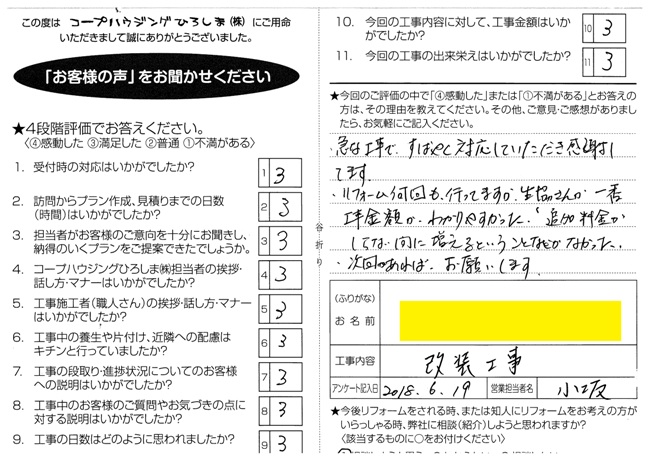 この度は コープハウジングひろしま(株) にご用命
いただきまして誠にありがとうございました。
「お客様の声」をお聞かせください
★4段階評価でお答えください。
〈④感動した ③満足した ②普通 ①不満がある〉
1. 受付時の対応はいかがでしたか？ 1 3
2. 訪問からプラン作成、見積りまでの日数
(時間)はいかがでしたか？ 2 3
3. 担当者がお客様のご意向を十分にお聞きし、
納得のいくプランをご提案できたでしょうか。 3 3
4. コープハウジングひろしま㈱担当者の挨拶・
話し方・マナーはいかがでしたか？ 4 3
5. 工事施工者(職人さん)の挨拶・話し方・マナー
はいかがでしたか？ 5 3
6. 工事中の養生や片付け、近隣への配慮は
キチンと行っていましたか？ 6 3
7. 工事の段取り・進捗状況についてのお客様
への説明はいかがでしたか？ 7 3
8. 工事中のお客様のご質問やお気づきの点に
対する説明はいかがでしたか？ 8 3
9. 工事の日数はどのように思われましたか？ 9 3
谷折り
10. 今回の工事内容に対して、工事金額はいか
がでしたか？ 10 3
11. 今回の工事の出来栄えはいかがでしたか？ 11 3
★今回のご評価の中で「④感動した」または「①不満がある」とお答え
の方は、その理由を教えてください。その他、ご意見・ご感想がありまし
たら、お気軽にご記入ください。
・急な工事で、すばやく対応していただき感謝し
てます。
・リフォーム何回も、行ってますが、生協さんが、一番
工事金額が、わかりやすかった、「追加料金が
してない間に増えるということなどがなかった、
・次回があれば、お願いします
(ふりがな)
お 名 前
工事内容 改装工事
アンケート記入日 2018.6.19 営業担当者名 小坂
★今後リフォームをされる時、または知人にリフォームをお考えの方が
いらっしゃる時、弊社に相談(紹介)しようと思われますか？
〈該当するものに○をお付けください〉